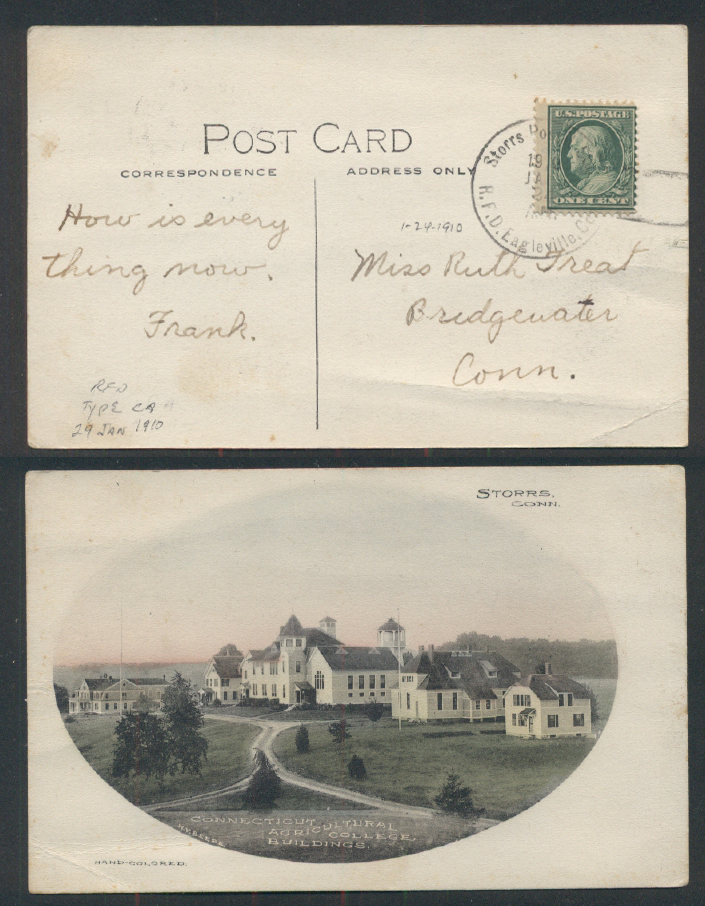 POST CARD
CORRESPONDENCE
ADDRESS ONLY
U.S. POSTAGE
ONE CENT
Storrs Po
19
R.F.D. Eagleville, Co
1-24-1910
How is every
thing now.
Frank.
Miss Ruth Treat
Bridgewater
Conn.
RFD
TYPE CA
29 JAN 1910
STORRS,
CONN.
CONNECTICUT AGRICULTURAL
COLLEGE,
BUILDINGS.
HAND-COLORED.